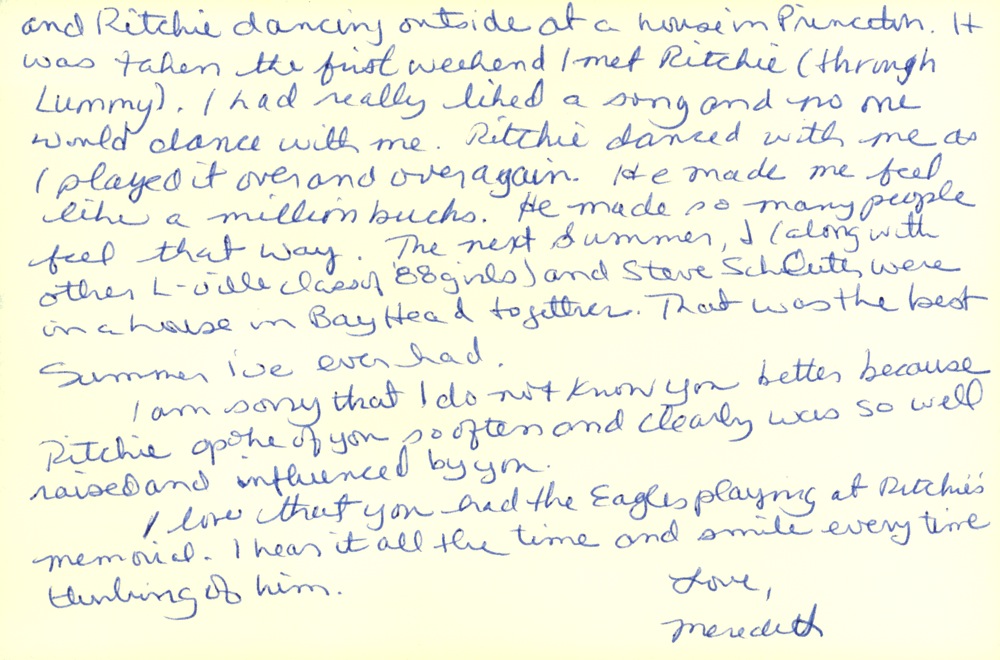 and Ritchie dancing outside at a house in Princeton. It
was taken the first weekend I met Ritchie (through
Lummy). I had really liked a song and no one
would dance with me. Ritchie danced with me as
I played it over and over again. He made me feel
like a million bucks. He made so many people
feel that way. The next summer, I (along with
other L-ville class of '88 girls) and Steve were
in a house in Bay Head together. That was the best
Summer i've ever had.
I am sorry that I do not know you better because
Ritchie spoke of you so often and clearly was so well
raised and influenced by you.
I love that you had the Eagles playing at Ritchie's
memorial. I hear it all the time and smile every time
thinking of him.
Love,
Meredith